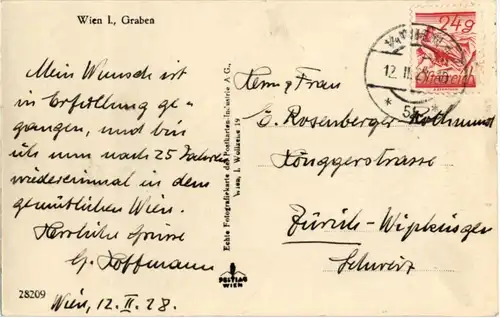 Wien I., Graben
Mein Wunsch ist
in Erfüllung ge-
gangen, und bin
ich nun nach 25 Jahren
wiedereinmal in dem
gemütlichen Wien.
Herzliche Grüsse
Hoffmann
Wien, 12. II. 28.
28209
Echte Fotografiekarte des Postkarten-Industrie A G.,
Wien, I. Wollzeile 19
POSTIAG
WIEN
24g
Österreich
12. II. 28
Herr u. Frau
E. Rosenberger-Rothmund
Hönggerstrasse
Zürich-Wipkingen
Schweiz